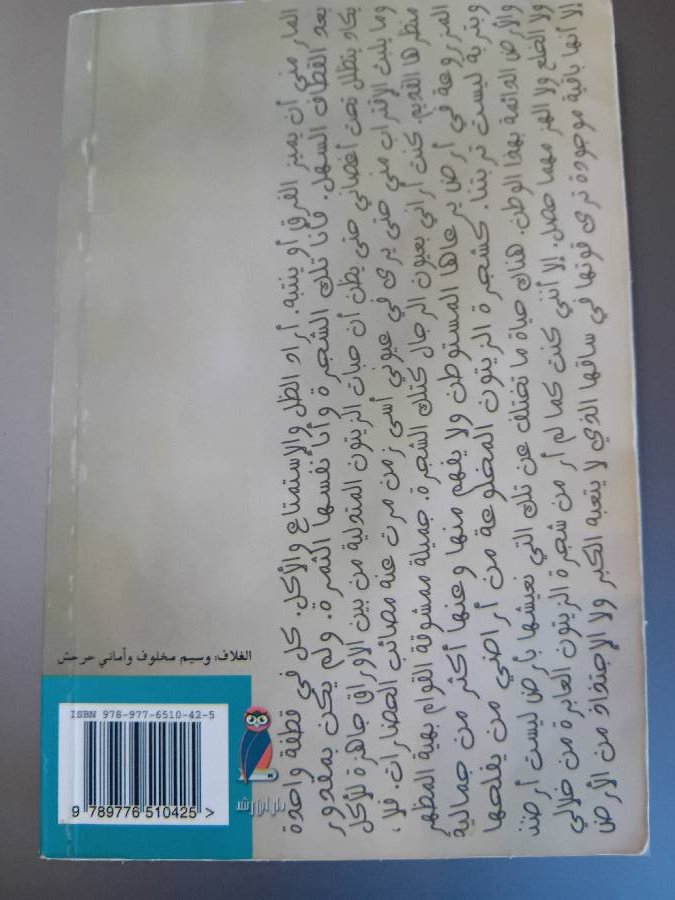 المار مني أن يميز الفرق أو ينتبه. أراد الظل والإستمتاع والأكل. كل في قطفة واحدة
بعد القطاف السهل. فأنا تلك الشجرة وأنا نفسها الثمرة. ولم يكن بمقدور
يكاد يتظلل تحت أغصاني حتى يظن أن حبات الزيتون المتدلية من بين الاوراق جاهزة للأكل
وما يلبث الإقتراب مني حتى يرى في عيوني أسى زمن مرت عنه مصائب العصارات. فلا،
منظرها القديم. كنت أراني بعيون الرجال كتلك الشجرة. جميلة ممشوقة القوام بهية المظهر
المزروعة في أرض يرعاها المستوطن ولا يفهم منها وعنها أكثر من جمالية
وبتربة ليست تربتنا. كشجرة الزيتون المخلوعة من أراضي من يفلحها
والأرض الدائمة بهذا الوطن. هناك حياة ما تختلف عن تلك التي نعيشها بأرض ليست أرضنا
ولا الخلع ولا الهز مهما حصل. إلا أنني كنت كما لم أر من شجرة الزيتون العابرة من خلالي
إلا أنها باقية موجودة ترى قوتها في ساقها الذي لا يتعبه الكبر ولا الإجتذاذ من الأرض
الغلاف: وسيم مخلوف وأماني حرحش
ISBN 978-977-6510-42-5
9 789776 510425 >
دار ابن رشد